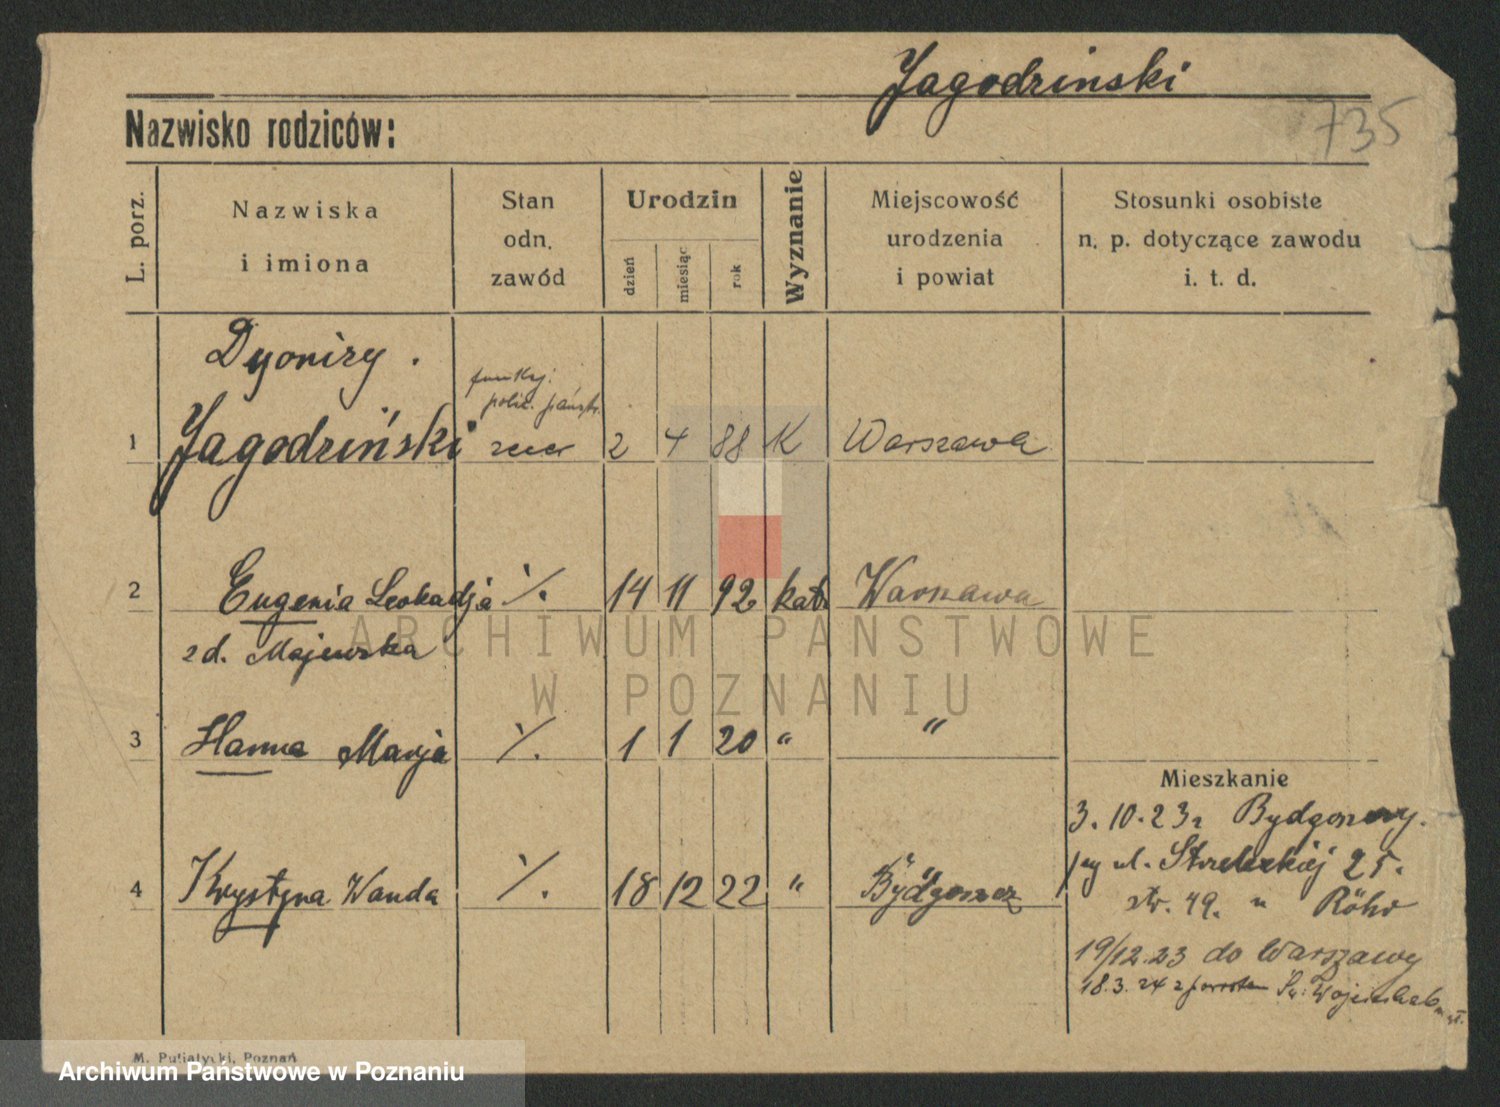 Jagodzinski
735
Nazwisko rodziców:
L. porz.
Nazwiska
i imiona
Stan
odn.
zawód
Urodzin
dzień
miesiąc
rok
Wyznanie
Miejscowość
urodzenia
i powiat
Stosunki osobiste
n. p. dotyczące zawodu
i. t. d.
Dyonizy.
funkcj.
polic. państw.
1 Jagodziński 2 4 88 K Warszawa
2 Eugenia Leokadja ·/. 14 11 92 kat. Warszawa
zd. Majewska
ARCHIWUM PAŃSTWOWE
W POZNANIU
3 Hanna Marja ·/. 1 1 20 " "
Mieszkanie
3.10.23r Bydgoszczy.
ul. Strzeleckiej 25.
4 Krystyna Wanda ·/. 18 12 22 " Bydgoszcz
str. 49. u Röhr
19/12.23 do Warszawy
18.3.24 z powrotem Św. Wojciecha
M. Putiatycki, Poznań
Archiwum Państwowe w Poznaniu